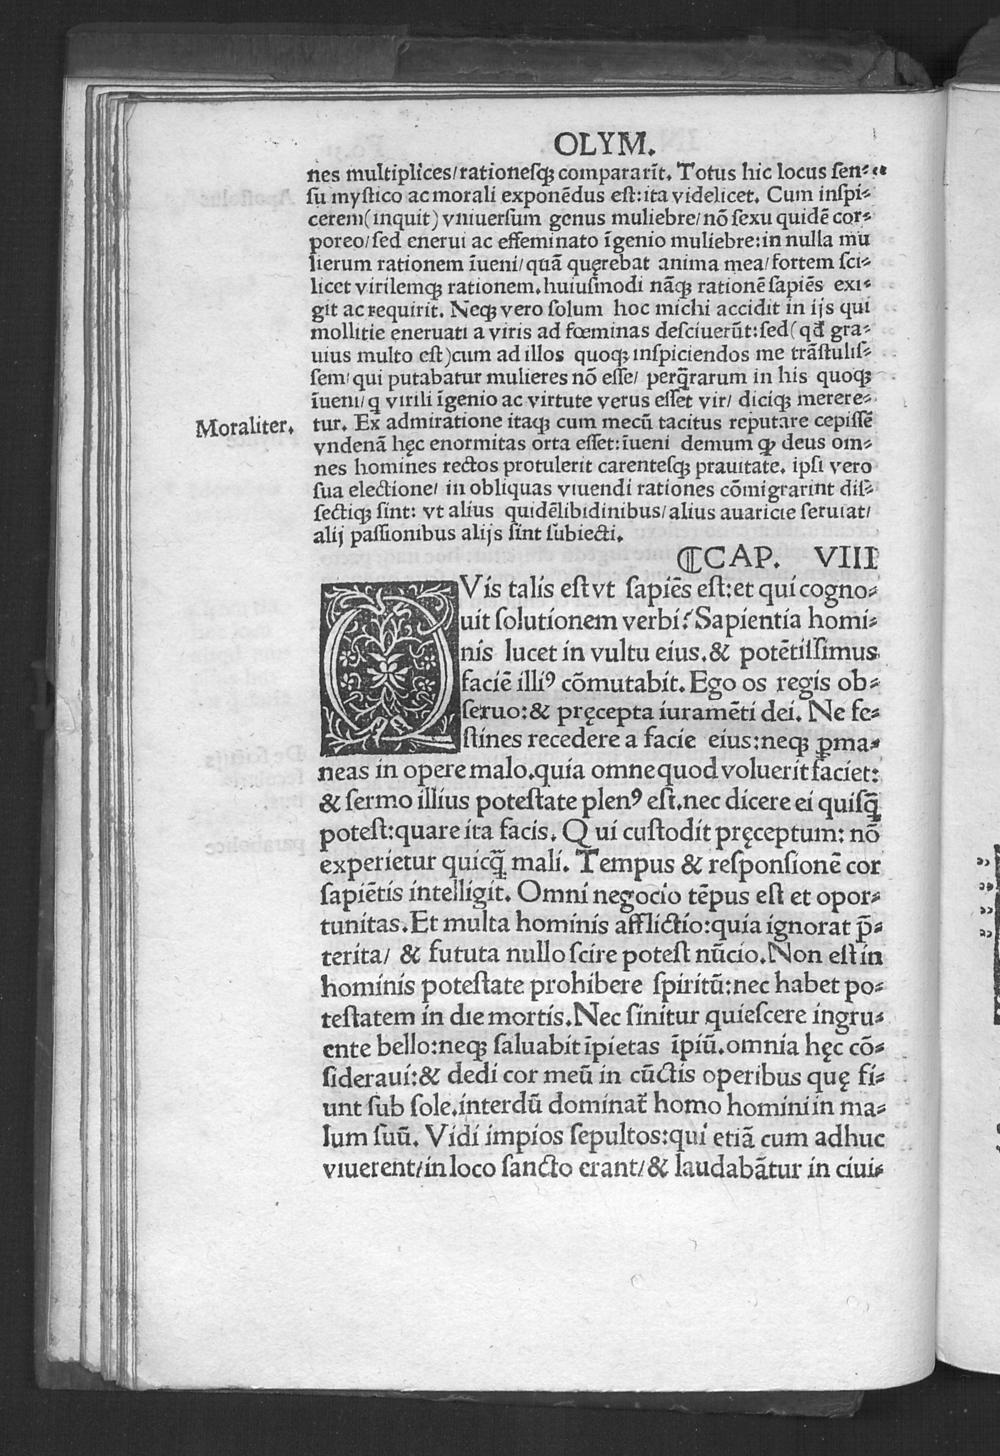 OLYM.
nes multiplices/rationesqꝫ compararīt. Totus hic locus sen⸗
su mystico ac morali exponēdus est:ita videlicet. Cum inspi⸗
cerem(inquit) vniuersum genus muliebre/nō sexu quidē cor⸗
poreo/sed enerui ac effeminato īgenio muliebre:in nulla mu
lierum rationem īueni/quā quęrebat anima mea/fortem sci⸗
licet virilemqꝫ rationem.huiusmodi nāqꝫ rationē sapiēs exi⸗
git ac requirit. Neqꝫ vero solum hoc michi accidit in ijs qui
mollitie eneruati a viris ad fœminas desciuerūt:sed(qđ gra⸗
uius multo est)cum ad illos quoqꝫ inspiciendos me trāstulis⸗
sem/qui putabatur mulieres nō esse/ perq̄rarum in his quoqꝫ
īueni/q virili īgenio ac virtute verus esset vir/ diciqꝫ merere⸗
Moraliter.
tur. Ex admiratione itaqꝫ cum mecū tacitus reputare cepissē
vndenā hęc enormitas orta esset:īueni demum qꝫ deus om⸗
nes homines rectos protulerit carentesqꝫ prauitate. ipsi vero
sua electione/ in obliquas viuendi rationes cōmigrarint dis⸗
sectiqꝫ sint: vt alius quidēlibidinibus/alius auaricie seruiat/
alij passionibus alijs sint subiecti.
⁋CAP. VIII
QVis talis est vt sapiēs est:et qui cogno⸗
uit solutionem verbi? Sapientia homi⸗
nis lucet in vultu eius.& potētissimus
faciē illiꝰ cōmutabit. Ego os regis ob⸗
seruo:& pręcepta iuramēti dei. Ne fe⸗
stines recedere a facie eius:neqꝫ ꝑma⸗
neas in opere malo.quia omne quod voluerit faciet:
& sermo illius potestate plenꝰ est.nec dicere ei quisq̄
potest:quare ita facis. Qui custodit pręceptum: nō
experietur quicq̄ mali. Tempus & responsionē cor
sapiētis intelligit. Omni negocio tēpus est et opor⸗
tunitas.Et multa hominis afflictio:quia ignorat p̄⸗
terita/ & fututa nullo scire potest nūcio. Non est in
hominis potestate prohibere spiritū:nec habet po⸗
testatem in die mortis. Nec sinitur quiescere ingru⸗
ente bello:neqꝫ saluabit īpietas īpiū.omnia hęc cō⸗
siderauí:& dedi cor meū in cūctis operibus quę fi⸗
unt sub sole.interdū dominat̄ homo homini in ma⸗
lum suū. Vidi impios sepultos:qui etiā cum adhuc
viuerent/in loco sancto erant/& laudabātur in ciui⸗